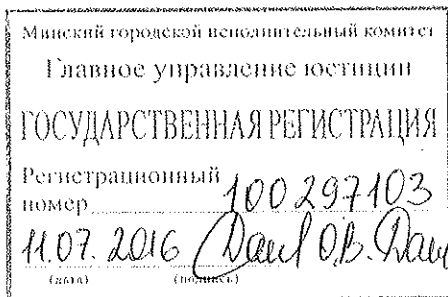 Минский городской исполнительный комитет
Главное управление юстиции
ГОСУДАРСТВЕННАЯ РЕГИСТРАЦИЯ
Регистрационный
номер 100297103
11.07.2016 О.В.
(дата) (подпись)